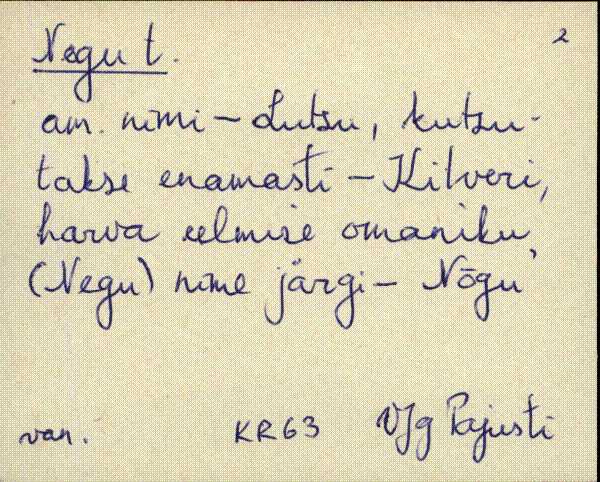 Negu t. 2
am. nimi - Lutsu, kutsu-
takse enamasti - Kitveri,
harva eelmise omaniku
(Negu) nime järgi - Nõgu'
van. KR63 VJg Pajusti